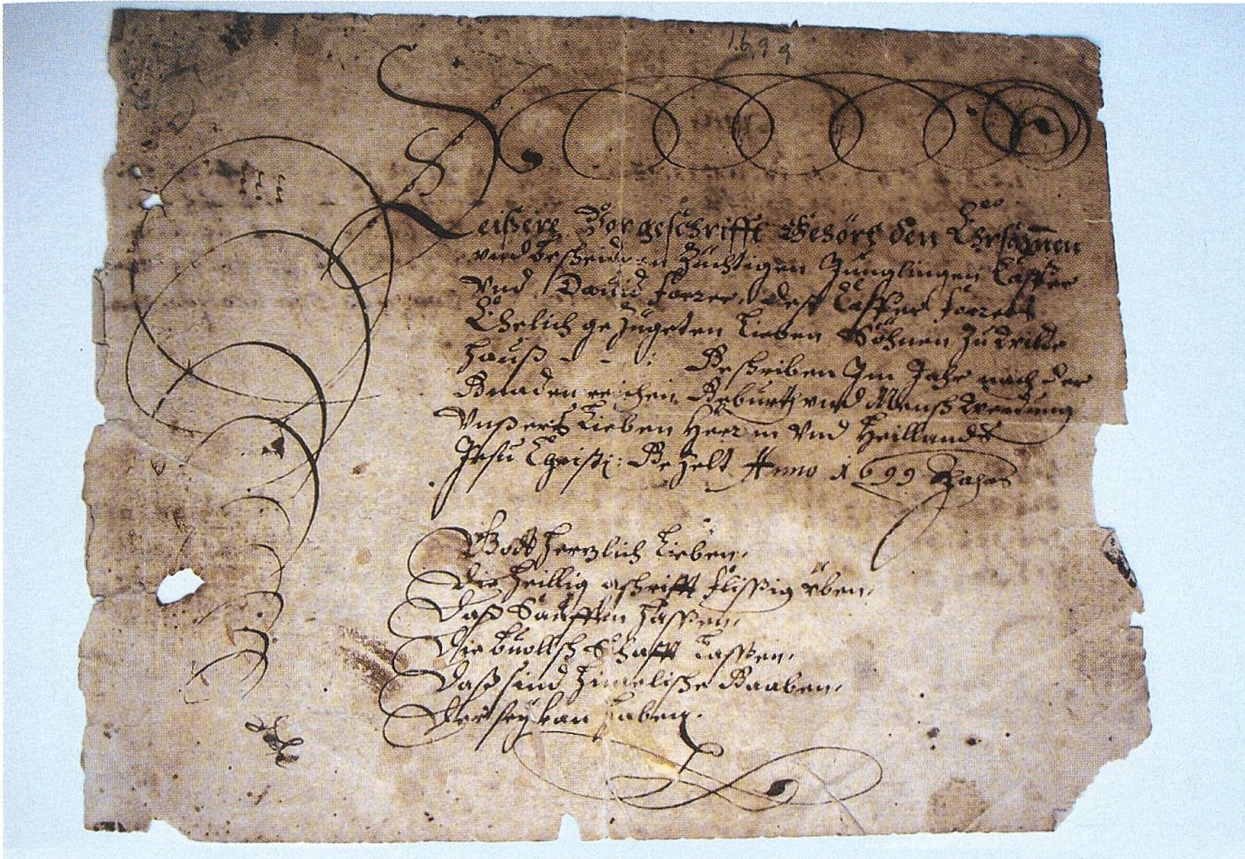 1699
Leisere Vorgeschrifft Gehört den Ehrsammen
und bescheidnen Züchtigen Junglingen Casper
Vnd David Forrer, deß Casper Forrers
Ehelich gezügeten Lieben Söhnen zu Wilde
hauß - - : Beschriben Im Jahr nach der
Gnadenreichen Geburth und Mensch werdung
Vnsers Lieben Herren Vnd Heillands
Jesu Christi: Gezelt Anno 1699 Jahrs
Gott Hertzlich Lieben,
Die Heillig gschrifft flissig üben,
Daß Sauffen Hassen,
Die buollschafft Lassen,
Daß sind Himelische Gaaben,
Der sey kan haben.